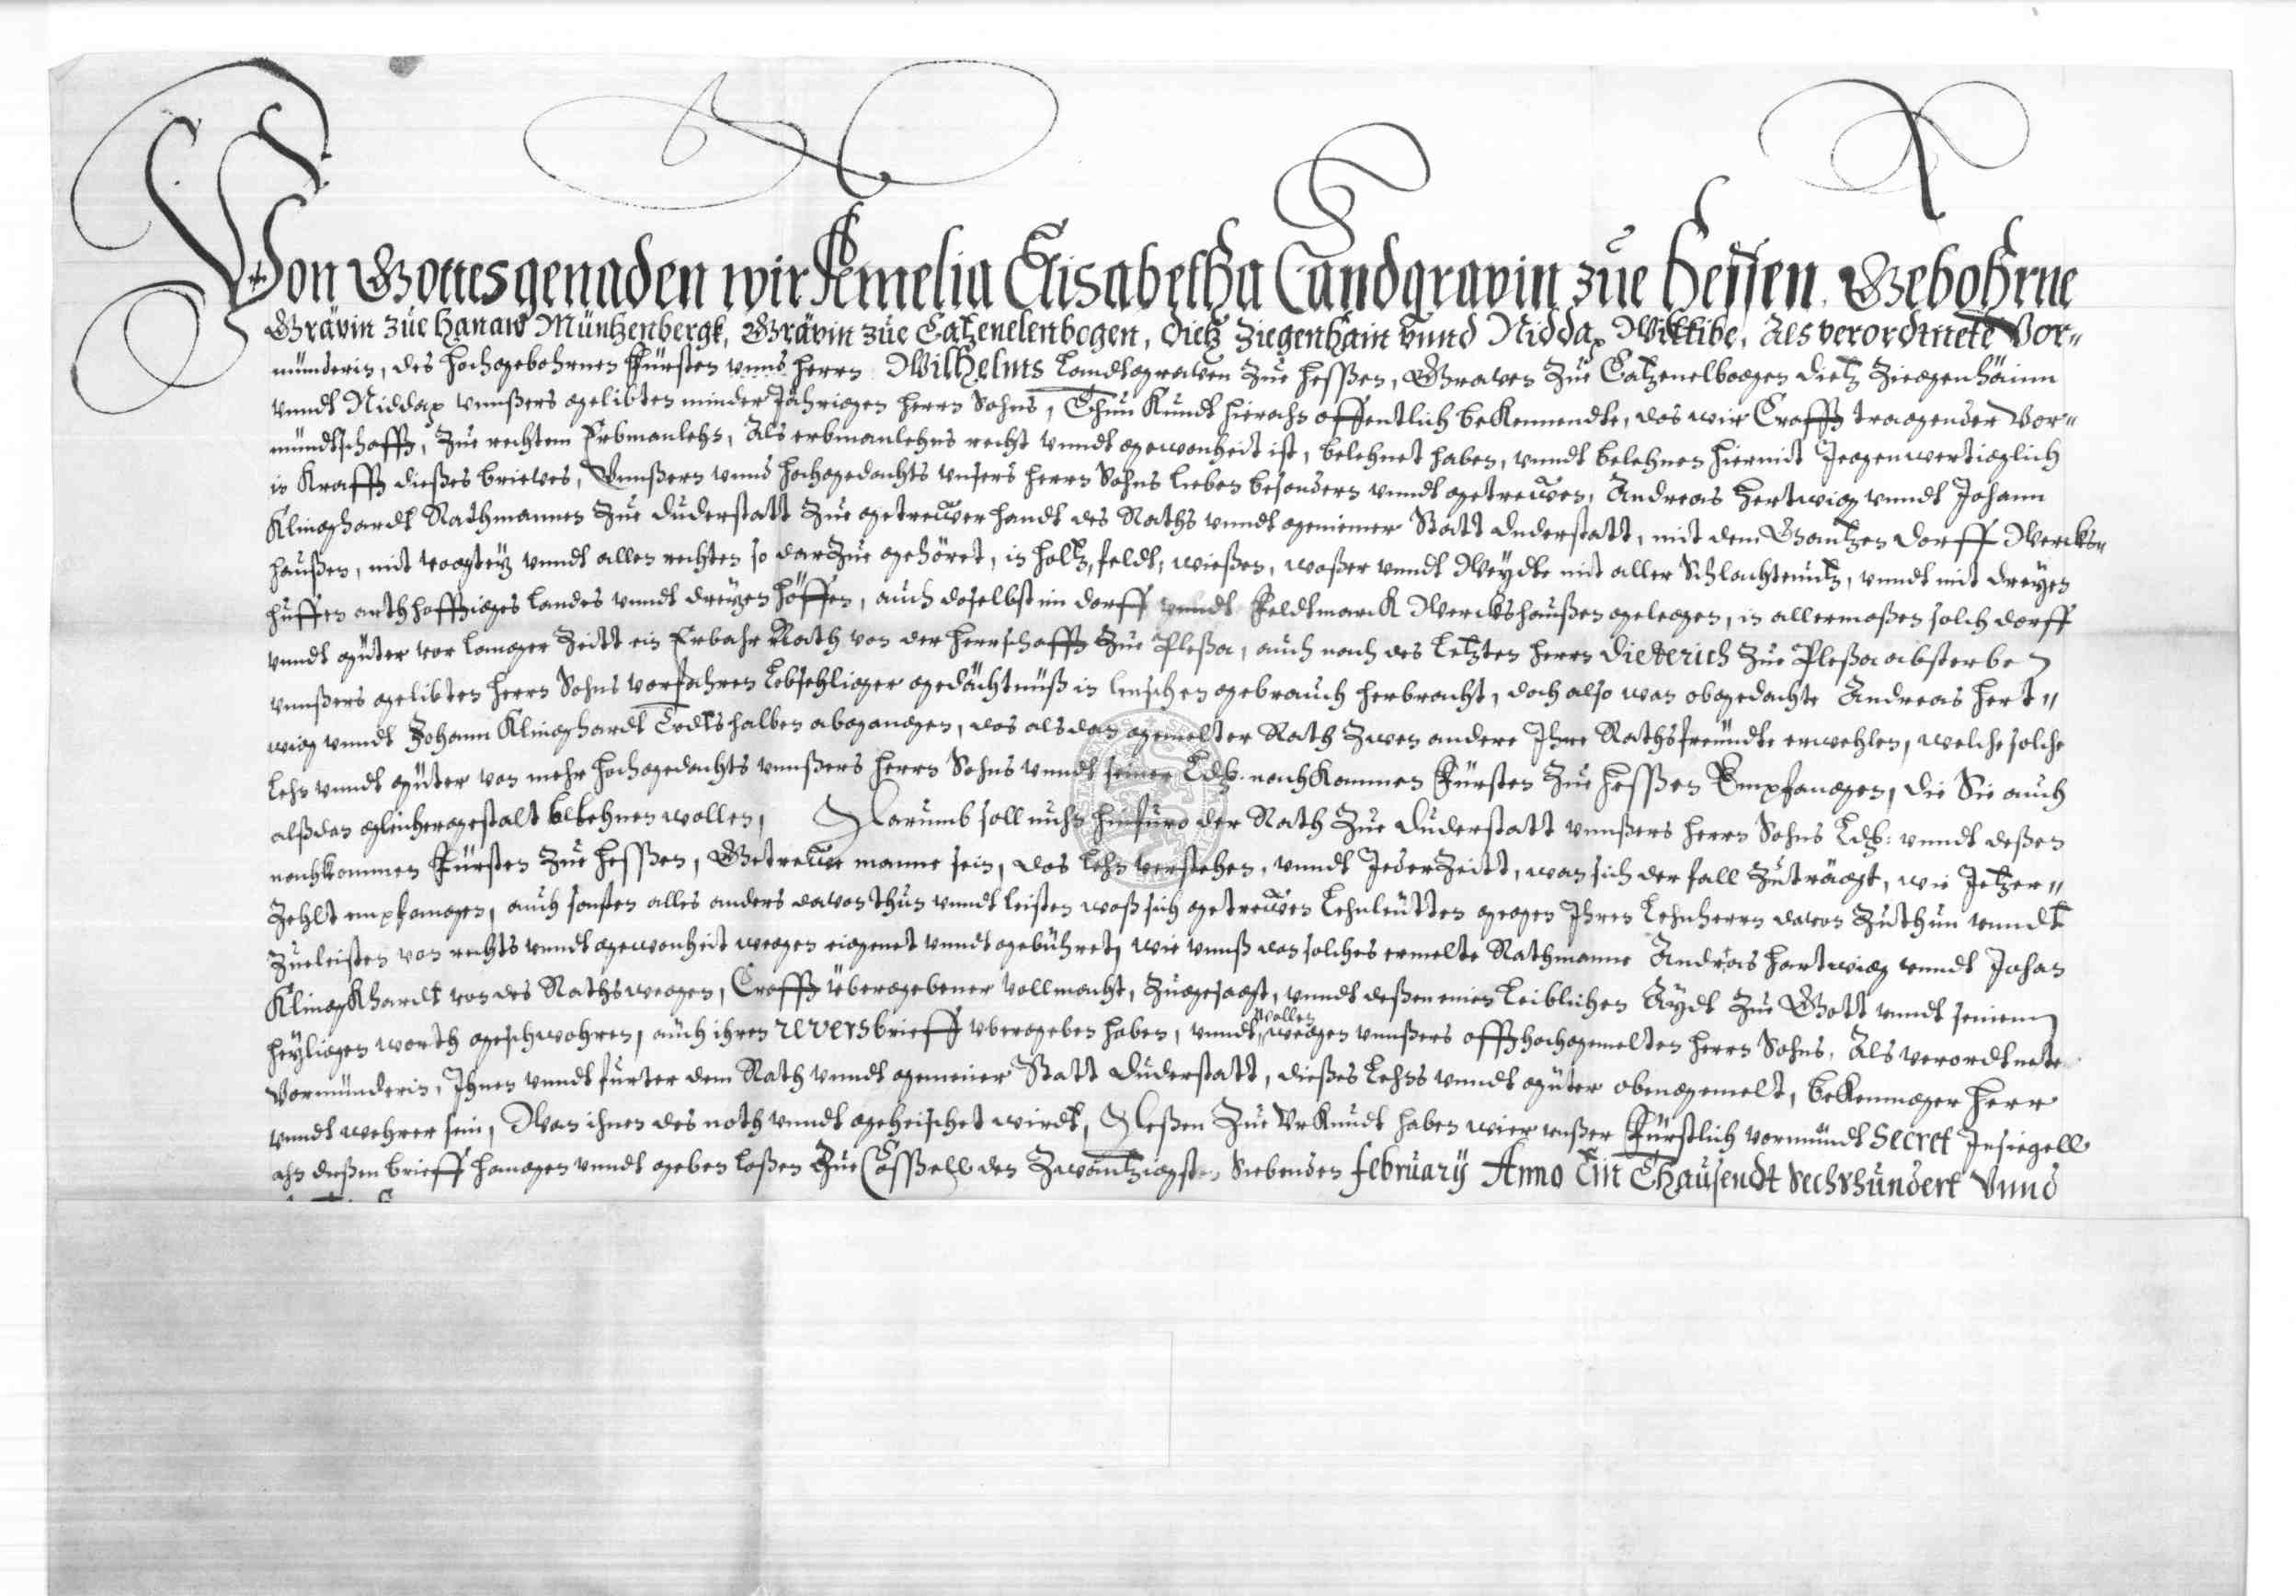 Von Gottes genaden wir Aemelia Elisabetha Landgravin zue Hessen. Gebohrne
Grävin zue Hanaw Müntzenbergk, Grävin zue Catzenelenbogen, Dietz Ziegenhain vnnd Nidda, Wittibe, Als verordtnete Vor„
münderin, des hochgebohrnen Fürsten vnnd Herrn Wilhelms Landtgraven Zue Hesßen, Graven Zue Catzenelbogen Dietz Ziegenhäinn
vnndt Nidda, vnnßers gelibten minder Jährigen Herrn Sohns, Thun Kundt hieran offentlich beKennendte, das wir Crafft tragender Vor„
mündtschafft, Zue rechtem Erbmanlehn, Als erbmanlehns recht vnndt gewonheit ist, belehnet haben, vnndt belehnen hiermit Jegenwertiglich
in Krafft dießes brieves, Vnnßern vnnd hochgedachts vnsers Herrn Sohns Lieben besondern vnndt getrewen, Andreas Hertwig vnndt Johann
Klinghardt Rathmannen Zue Duderstatt Zue getrewer handt des Raths vnndt gemeiner Statt Duderstatt, mit dem Gantzen Dorff Wercks„
haußen, mit voogtey vnndt allen rechten so darZue gehöret, in holtz, feldt, wießen, waßer vnndt Weydte mit aller Schlachtenutz, vnndt mit dreyen
huffen arthhafftiges Landes vnndt dreyen höffen, auch daselbst im dorff vnndt FeldtmarcK Werckshaußen gelegen, in allermaßen solch dorff
vnndt güter vor langer Zeitt ein Erbahr Rath von der Herrschafft Zue Pleßa, auch nach des Letzten Herrn Dieterich Zue Pleßa absterben
vnnßers gelibten Herrn Sohns vorfahren Lobsehliger gedächtnüß in lenschen gebrauch herbracht, doch also wan obgedachte Andreas Hert„
wig vnndt Johann Klinghardt Todtshalben abgangen, das alsdan gemelter Rath Zween andere Ihre Rathsfreündte erwehlen, welche solche
Lehn vnndt güter von mehr hochgedachts vnnßers Herrn Sohns vnndt seiner Ldb. nachKommen Fürsten Zue Hesßen Empfangen, die Sie auch
alßdan gleichergestalt belehnen wollen, Darumb soll nuhn hinfuro der Rath Zue Duderstatt vnnßers Herrn Sohns Ldb: vnndt deßen
nachkommen Fürsten Zue Hesßen, Getrewe manne sein, das Lehn verstehen, vnndt JederZeitt, wan sich der fall Zuträgt, wie Jetzer„
Zehlt empfangen, auch sonsten alles anders davon thun vnndt leisten waß sich getrewen Lehnleütten gegen Ihren Lehnherrn davon Zuthun vnndt
Zueleisten von rechts vnndt gewonheit wegen eigenet vnndt gebühret, wie vnnß dan solches ermelte Rathmanne Andreas Hartwig vnndt Johan
KlingKhardt von des Raths wegen, Crafft übergebener Vollmacht, Zugesagt, vnndt deßen einen Leiblichen Aydt Zue Gott vnndt seinem
heyligen worth geschwohren, auch ihren reversbrieff vbergeben haben, vnndt wollen wegen vnnßers offthochgemelten Herrn Sohns, Als verordtnete
Vormünderin, Ihnen vnndt furter dem Rath vnndt gemeiner Statt Duderstatt, dießes Lehns vnndt güter obengemelt, beKenniger Herr
vnndt wehrer sein, Wan ihnen des noth vnndt geheischet wirdt, Deßen Zue VrKundt haben wier vnßer Fürstlich vormündt Secret Insiegell
ahn dießen brieff hangen vnndt geben laßen Zue Casßell den Zwantzigsten Siebenden february Anno Ein Thausendt Sechshundert Vnnd